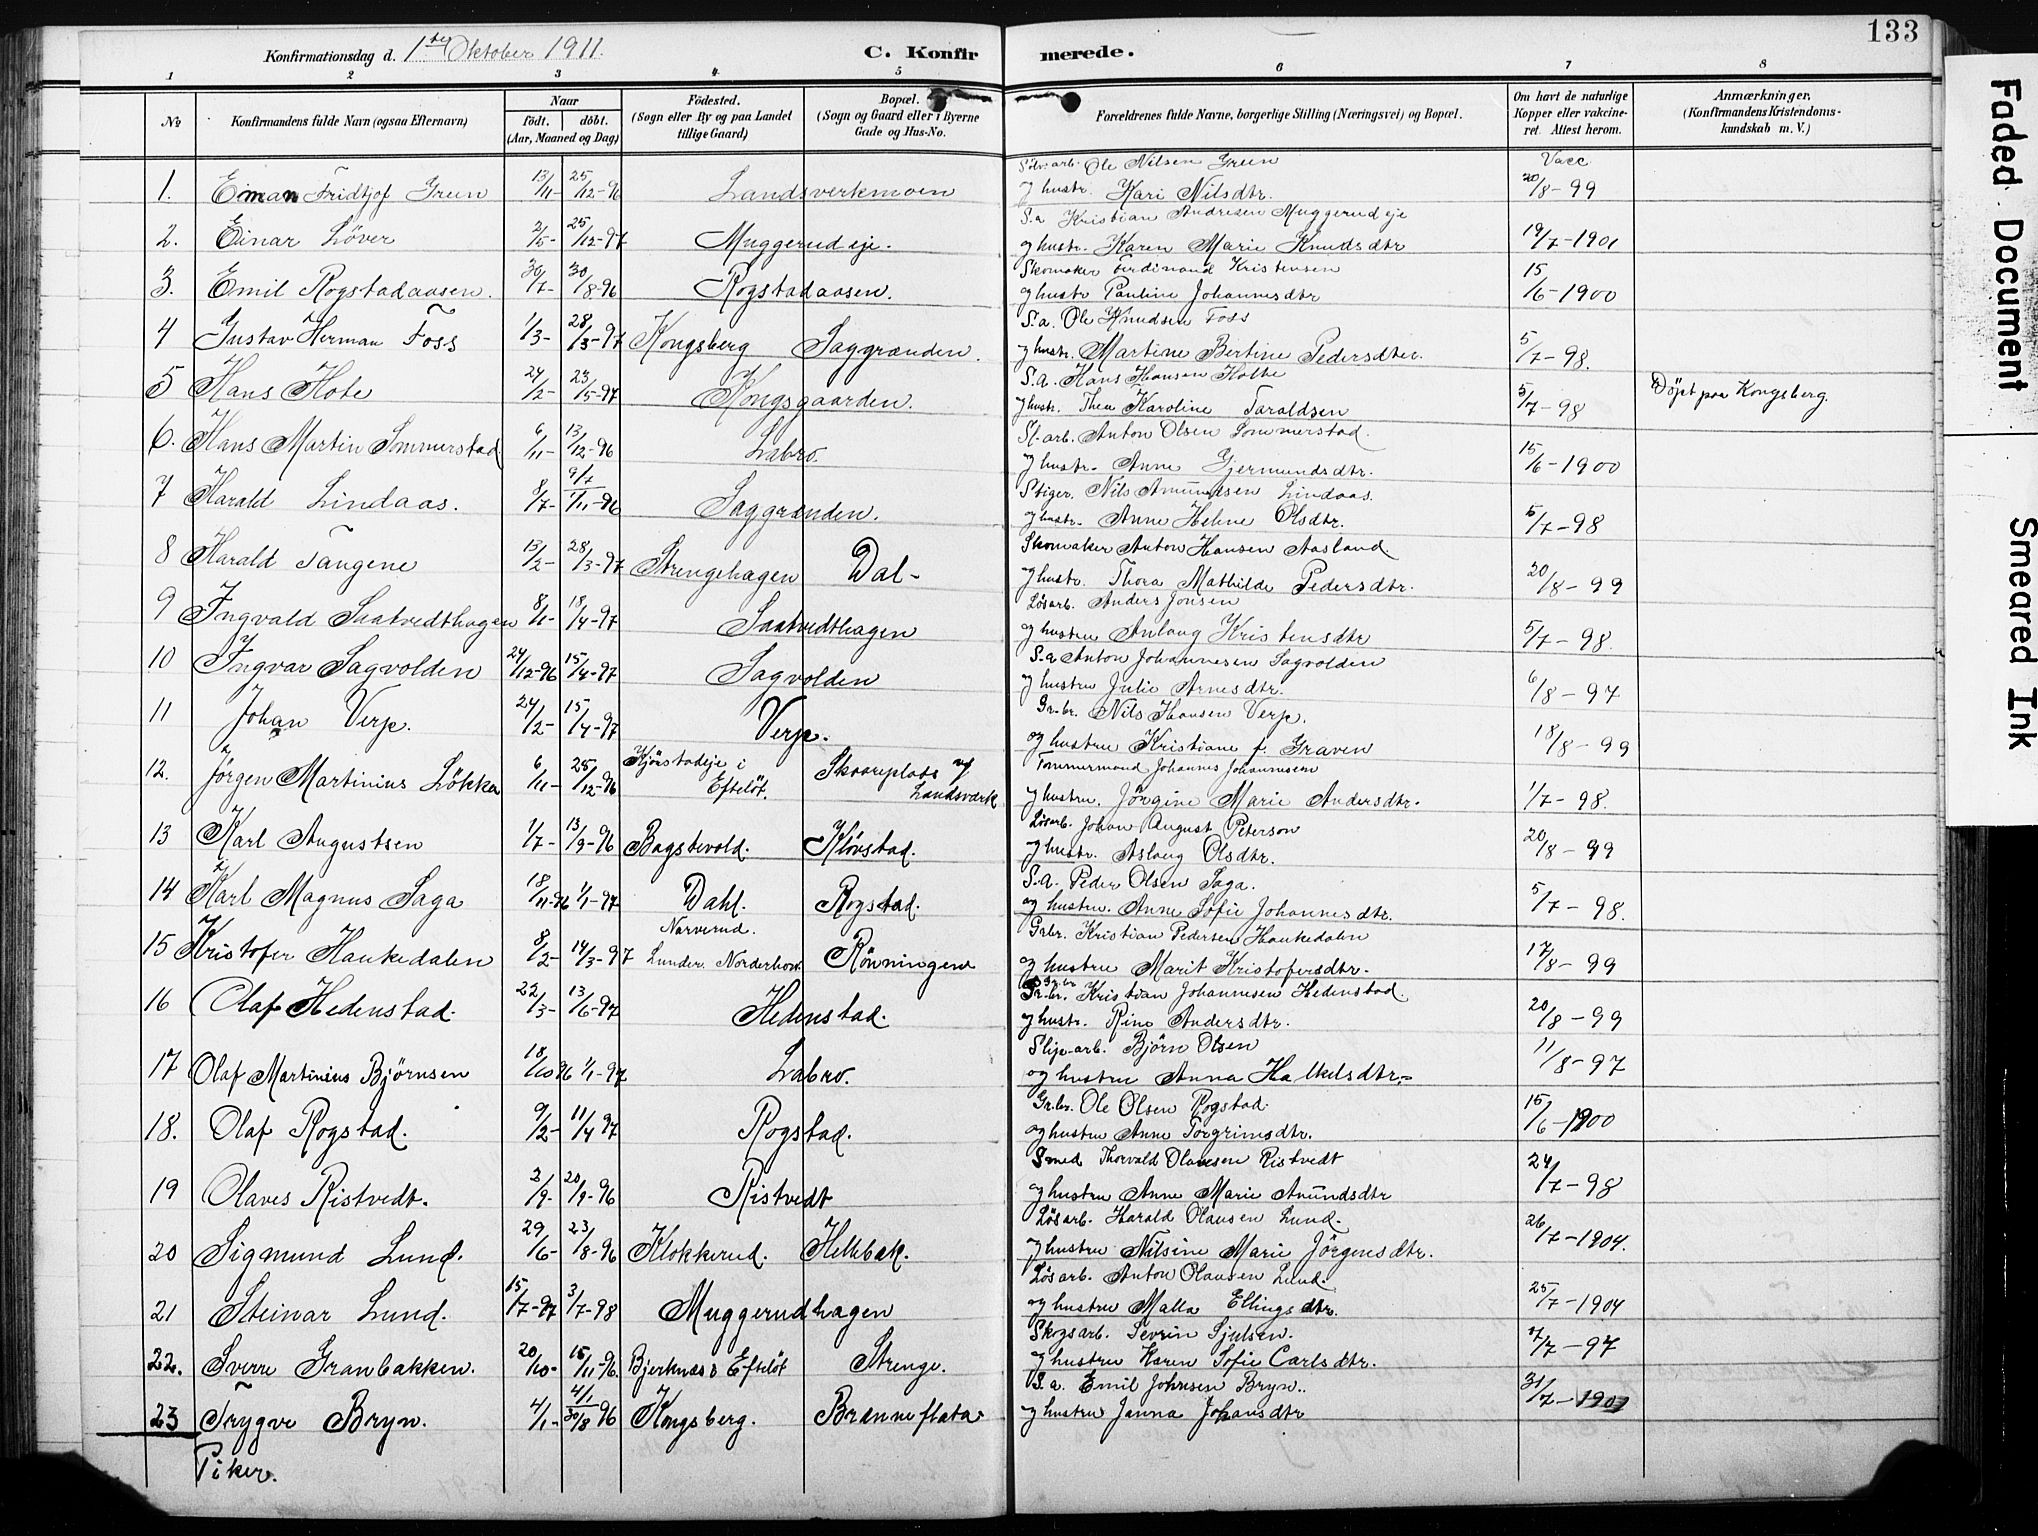 133
Konfirmationsdag d. 1ste Oktober 1911.
C. Konfirmerede.
1 2 3 4. 5 6 7 8
No
Konfirmandens fulde Navn (ogsaa Efternavn)
Naar
födt. döbt.
(Aar, Maaned og Dag)
Födested.
(Sogn eller By og paa Landet
tillige Gaard)
Bopæl.
(Sogn og Gaard eller i Byerne
Gade og Hus-No.
Forældrenes fulde Navne, borgerlige Stilling (Næringsvei) og Bopæl.
Om havt de naturlige
Kopper eller vakcine-
ret. Attest herom.
Anmærkninger.
(Konfirmandens Kristendoms-
kundskab m. V.)
Sölvarb. Ole Nilsen Green Vacc
1. Einar Fridtjof Green 13/11- 25/12-96 Landsverkmoen
og hustr. Kari Nilsdtr. 20/8-99
S.a. Kristian Andresen Muggerudeje
2. Einar Löver 2/5- 25/12-97 Muggerudeje.
og hustr. Karen Marie Knudsdtr 19/7-1901
Skomaker Ferdinand Kristensen
3. Emil Rogstadaasen. 30/7- 30/8-96 Rogstadaasen.
og hustr Pauline Johannesdtr 15/6-1900
S.a. Ole Knudsen Foss
4 Gustav Herman Foss 1/3- 28/3-97 Kongsberg Saggrænden.
og hustr. Martine Bertine Pedersdter. 5/7-98.
S.a. Hans Hansen Holte
5 Hans Hote 24/2- 23/5-97 Kongsgaarden.
og hustr. Thea Karoline Taraldsen 5/7-98 Döpt paa Kongsberg
Sl-arb. Anton Olsen Sommerstad.
6. Hans Martin Sommerstad 6/11- 13/12-96 Labro.
og hustr. Anne Gjermundsdtr. 15/6-1900
Stiger. Nils Amundsen Lindaas.
7 Harald Lindaas. 8/7- 9/7 1/11-96 Saggrenden.
og hustr. Anne Helene Olsdtr. 5/7-98
Skomaker Anton Hansen Aasland
8 Harald Tangene 13/2- 28/3-97 Strengehagen Dal-
og hustr. Thora Mathilde Pedersdtr. 20/8-99
Lösarb. Anders Jonsen
9 Ingvald Saatvedthagen 8/1- 18/4-97 Saatvedthagen
og hustru Anlaug Kristensdtr 5/7-98.
S.a Anton Johannesen Sagvolden
10 Ingvar Sagvolden 24/12-96 15/4-97 Sagvolden
og hustru Julie Arnesdtr. 6/8-97
Gr.br. Nils Hansen Verp.
11 Johan Verp. 24/2- 15/4-97 Verp.
og hustru Kristiane f. Graven 18/8-99
Tømmermand Johannes Johannesen
12. Jörgen Martinius Lökka 6/11- 25/12-96 Kjörstadeje i Efteløt. Skaarplads v/ Landsværk
og hustru. Jörgine Marie Andersdtr. 1/7-98.
Lösarb. Johan August Peterson
13 Karl Augustsen 1/7- 13/9-96 Bagstevold. Klövstad.
og hustr. Aslaug Olsdtr. 20/8-99
S.A. Peder Olsen Saga.
14 Karl Magnus Saga 18/11-96 1/1-97 Dahl. Rogstad.
og hustru. Anne Sofie Johannesdtr. 5/7-98.
Grbr. Kristian Pedersen Haukedalen
15 Kristofer Haukedalen 8/2- 14/3-97 Narverud. Lunder. Norderhov. Rönningen
og hustru Marit Kristofersdtr. 17/8-99
Gr.br. Kristian Johannesen Hedenstad.
16 Olaf Hedenstad. 22/3- 13/6-97 Hedenstad.
og hustr. Rine Andersdtr. 20/8-99
Slip-arb. Björn Olsen
17 Olaf Martinius Björnsen 18/10 96 1/1-97 Labro.
og hustru Anna Halkelsdtr- 11/8-97
Gr.br. Ole Olsen Rogstad.
18. Olaf Rogstad. 9/2- 11/4 97 Rogstad.
og hustru Anne Torgrimsdtr. 15/6-1900
Smed Thorvald Olavesen Ristvedt
19 Olaves Ristvedt. 2/9- 20/9-96 Ristvedt
og hustru Anne Marie Amundsdtr 24/7-98
Lösarb. Harald Olausen Lund.
20 Sigmund Lund. 29/6- 23/8-96 Klokkerud. Hellebæk.
og hustru Nilsine Marie Jörgensdtr. 26/7-1904.
Lösarb. Anton Olausen Lund.
21 Steinar Lund. 15/7-97 3/7-98 Muggerudhagen
og hustru Malla Ellingsdtr. 25/7-1904
Skogsarb. Sevrin Sjulsen.
22. Sverre Granbakken. 20/10- 15/11-96. Bjerknæs i Efteløt Strenge.
og hustru Karen Sofie Carlsdtr. 7/7-97
S.a. Emil Johnsen Bryn..
23 Trygve Bryn. 4/1- 4/1 30/8-96 Kongsberg. Brænneflata
og hustru Janna Johansdtr 31/7-1903
Piker.
Faded Document
Smeared Ink